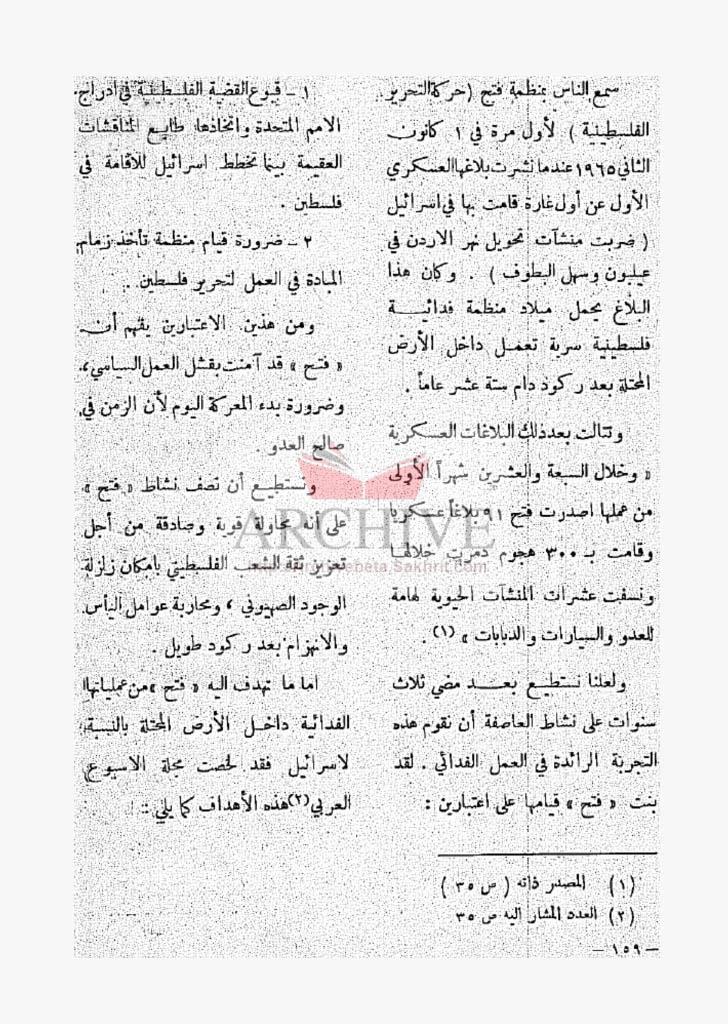 سمع الناس بمنظمة فتح (حركة التحرير
الفلسطينية ) لأول مرة في ١ كانون
الثاني ١٩٦٥ عندما نشرت بلاغها العسكري
الأول عن أول غارة قامت بها في اسرائيل
( ضربت منشآت تحويل نهر الاردن في
عيلبون وسهل البطوف ) . وكان هذا
البلاغ يحمل ميلاد منظمة فدائية
فلسطينية سرية تعمل داخل الأرض
المحتلة بعد ركود دام ستة عشر عاماً .
وتتالت بعد ذلك البلاغات العسكرية
« وخلال السبعة والعشرين شهراً الأولى
من عملها اصدرت فتح ٩١ بلاغاً عسكريا
وقامت بـ ٣٠٠ هجوم دمرت خلالها
ونسفت عشرات المنشآت الحيوية لهامة
للعدو والسيارات والدبابات » (١) .
ولعلنا نستطيع بعد مضي ثلاث
سنوات على نشاط العاصفة أن نقوم هذه
التجربة الرائدة في العمل الفدائي . لقد
بنت « فتح » قيامها على اعتبارين :
١ – قبوع القضية الفلسطينية في أدراج
الامم المتحدة واتخاذها طابع المناقشات
العقيمة بينما تخطط اسرائيل للاقامة في
فلسطين .
٢ – ضرورة قيام منظمة تأخذ زمام
المبادة في العمل لتحرير فلسطين .
ومن هذين الاعتبارين يفهم أن
« فتح » قد آمنت بفشل العمل السياسي،
وضرورة بدء المعركة اليوم لأن الزمن في
صالح العدو .
ونستطيع أن نصف نشاط « فتح »
على أنه محاولة قوية وصادقة من أجل
تعزيز ثقة الشعب الفلسطيني بامكان زلزلة
الوجود الصهيوني ، ومحاربة عوامل اليأس
والانهزام بعد ركود طويل .
اما ما تهدف اليه « فتح » من عملياتها
الفدائية داخل الأرض المحتلة بالنسبة
لاسرائيل فقد لخصت مجلة الاسبوع
العربي (٢) هذه الأهداف كما يلي :
(١) المصدر ذاته ( ص ٣٥ )
(٢) العدد المشار اليه ص ٣٥
– ١٥٩ –
ARCHIVE